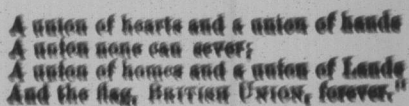 A union of hearts and a union of hands
A union none can sever;
A union of homes and a union of Lands
And the flag, BRITISH UNION, forever."